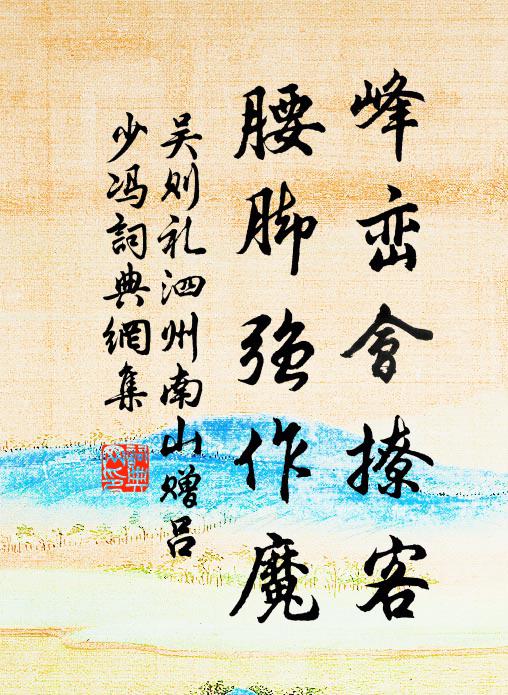 峰峦會撩客
腰脚強作魔
吴则礼泗州南山赠吕
少冯詞典網集